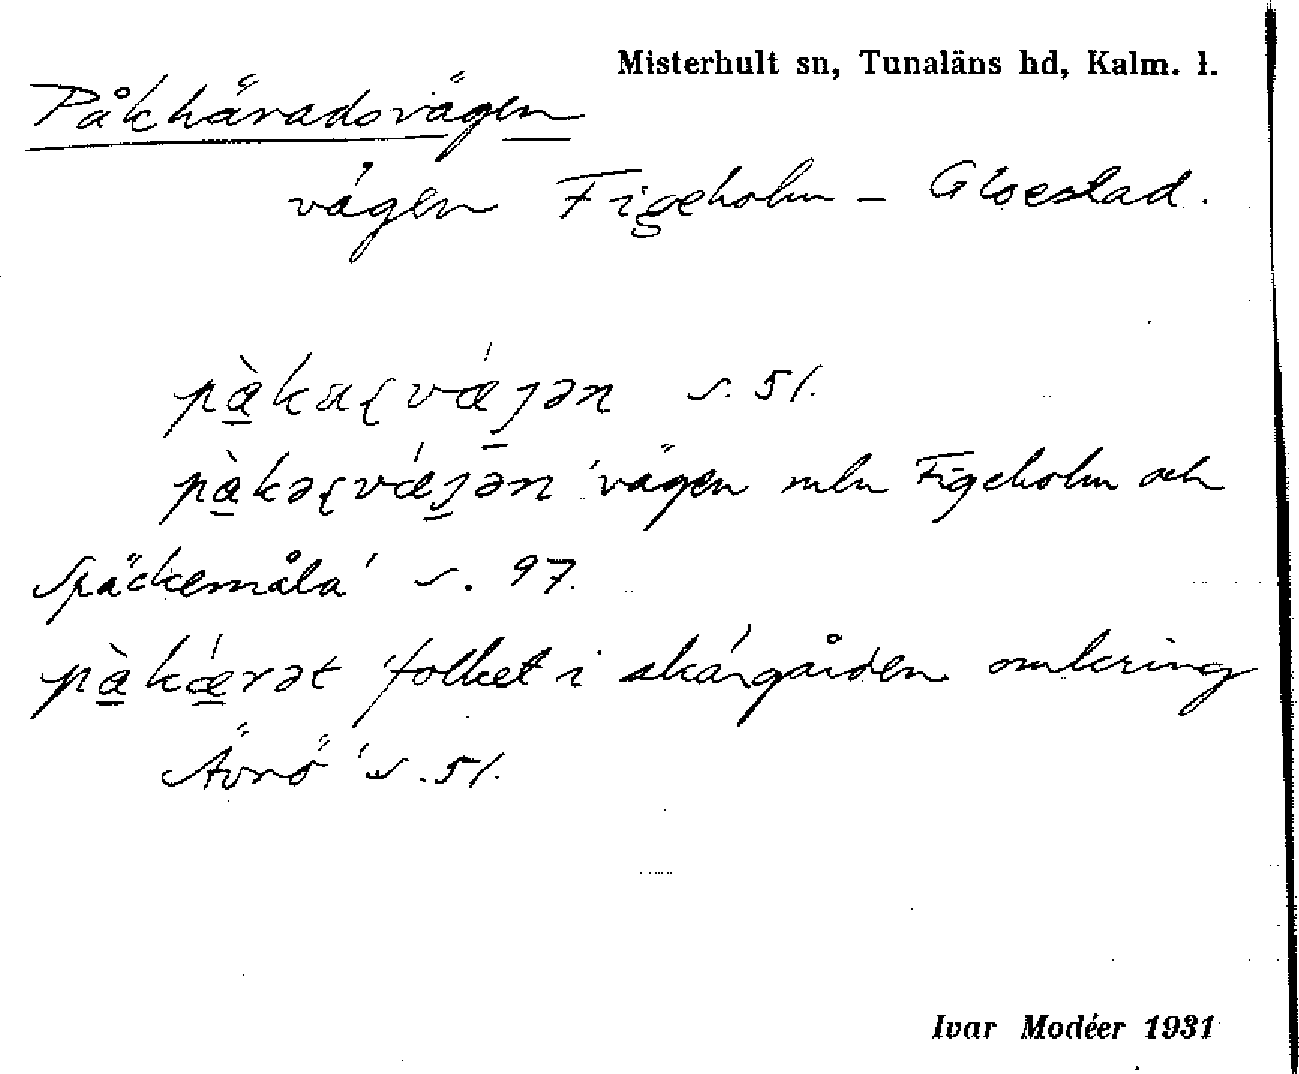 Misterhult sn, Tunaläns hd, Kalm. l.
Påkhäradsvägen
vägen Figeholm – Gloestad.
pàkaʂvǽȷən s. 51.
pàkəʂvǽȷən 'vägen mln Figeholm och
Späckemåla' s. 97.
pàkǽrət 'folket i skärgården omkring
Ävrö' s. 51.
Ivar Modéer 1931